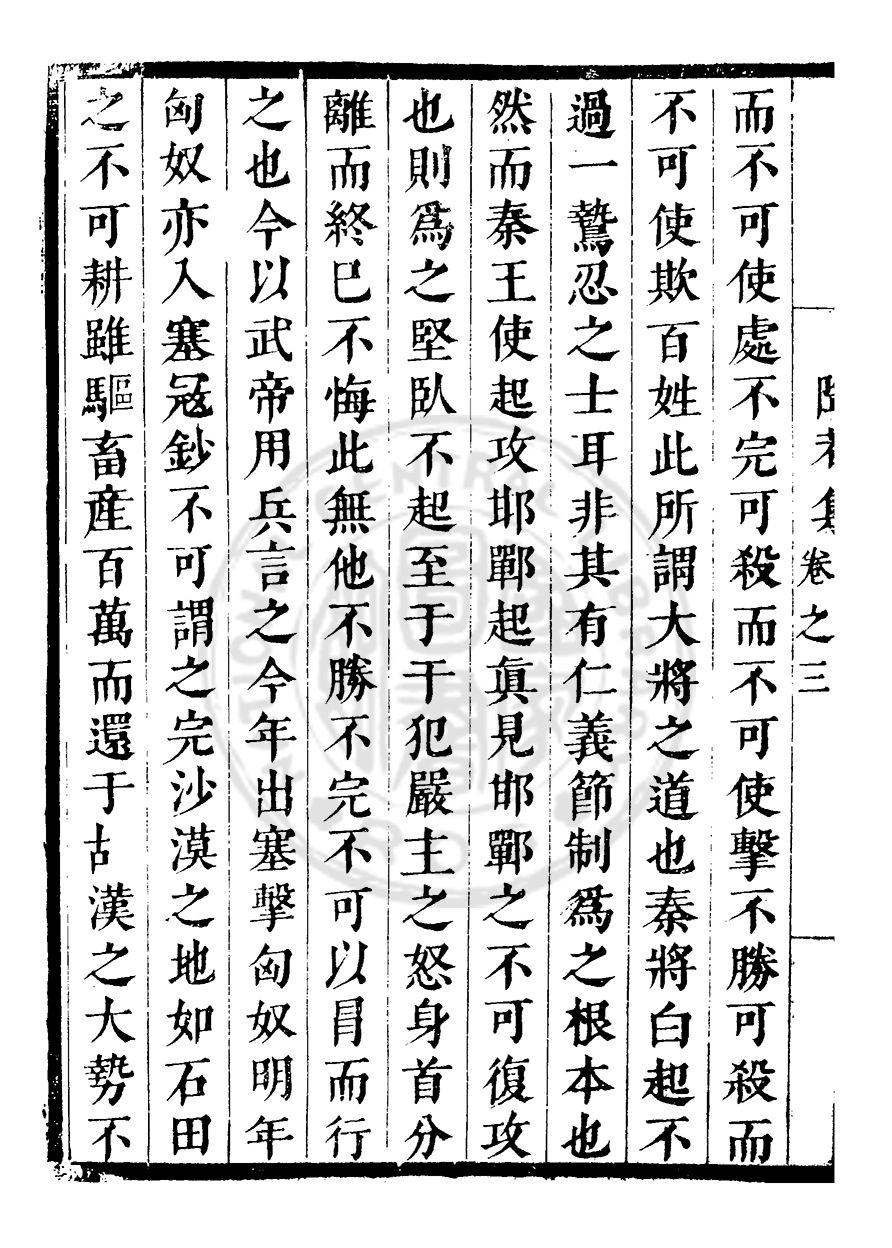 集卷之三
而不可使處不完可殺而不可使擊不勝可殺而
不可使欺百姓此所謂大將之道也秦將白起不
過一鷙忍之士耳非其有仁義節制爲之根本也
然而秦王使起攻邯鄲起眞見邯鄲之不可復攻
也則爲之堅臥不起至于干犯嚴主之怒身首分
離而終巳不悔此無他不勝不完不可以冐而行
之也今以武帝用兵言之今年出塞擊匈奴明年
匈奴亦入塞冦鈔不可謂之完沙漠之地如石田
之不可耕雖驅畜産百萬而還于古漢之大勢不